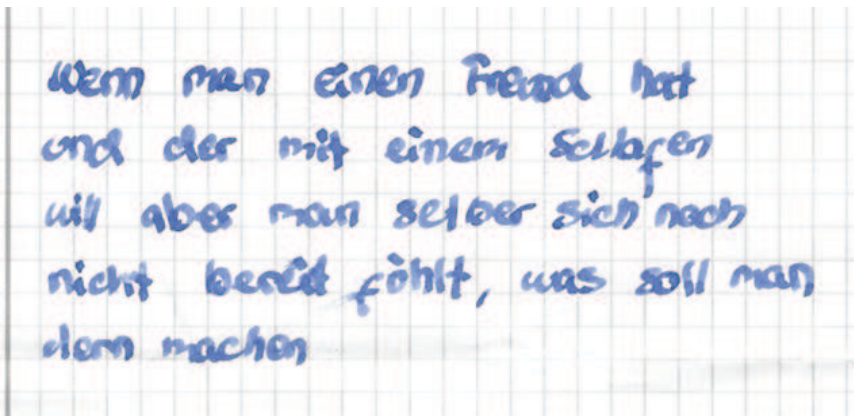 Wenn man einen Freund hat
und der mit einem Schlafen
will aber man selber sich noch
nicht bereit fühlt, was soll man
denn machen